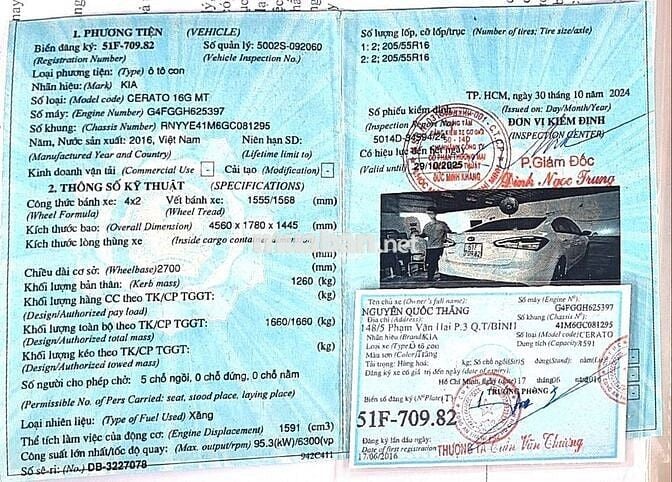 1. PHƯƠNG TIỆN (VEHICLE)
Biển đăng ký: 51F-709.82 Số quản lý: 5002S-092060
(Registration Number) (Vehicle Inspection No.)
Loại phương tiện: (Type) ô tô con
Nhãn hiệu: (Mark) KIA
Số loại: (Model code) CERATO 16G MT
Số máy: (Engine Number) G4FGGH625397
Số khung: (Chassis Number) RNYYE41M6GC081295
Năm, Nước sản xuất: 2016, Việt Nam Niên hạn SD:
(Manufactured Year and Country) (Lifetime limit to)
Kinh doanh vận tải (Commercial Use) - Cải tạo (Modification) -
2. THÔNG SỐ KỸ THUẬT (SPECIFICATIONS)
Công thức bánh xe: 4x2 Vết bánh xe: 1555/1568 (mm)
(Wheel Formula) (Wheel Tread)
Kích thước bao: (Overall Dimension) 4560 x 1780 x 1445 (mm)
Kích thước lòng thùng xe (Inside cargo container dimension)
(mm)
Chiều dài cơ sở: (Wheelbase) 2700 (mm)
Khối lượng bản thân: (Kerb mass) 1260 (kg)
Khối lượng hàng CC theo TK/CP TGGT: (kg)
(Design/Authorized pay load)
Khối lượng toàn bộ theo TK/CP TGGT: 1660/1660 (kg)
(Design/Authorized total mass)
Khối lượng kéo theo TK/CP TGGT: (kg)
(Design/Authorized towed mass)
Số người cho phép chở: 5 chỗ ngồi, 0 chỗ đứng, 0 chỗ nằm
(Permissible No. of Pers Carried: seat, stood place, laying place)
Loại nhiên liệu: (Type of Fuel Used) Xăng
Thể tích làm việc của động cơ: (Engine Displacement) 1591 (cm3)
Công suất lớn nhất/tốc độ quay: (Max. output/rpm) 95.3(kW)/6300(vp
942C411
Số sê-ri: (No.) DB-3227078
Số lượng lốp, cỡ lốp/trục (Number of tires; Tire size/axle)
1: 2; 205/55R16
2: 2; 205/55R16
TP. HCM, ngày 30 tháng 10 năm 2024
(Issued on: Day/Month/Year)
Số phiếu kiểm định
(Inspection Report No.) ĐƠN VỊ KIỂM ĐỊNH
5014D-94594/24 (INSPECTION CENTER)
Có hiệu lực đến hết ngày
(Valid until) 29/10/2025
P.Giám Đốc
Đinh Ngọc Trung
Tên chủ xe (Owner's full name): Số máy (Engine N°)
NGUYỄN QUỐC THẮNG G4FGGH625397
Địa chỉ (Address): Số khung (Chassis N°)
148/5 Phạm Văn Hai P.3 Q.T/BÌNH 41M6GC081295
Nhãn hiệu (Brand) KIA Số loại (Model code) CERATO
Loại xe (Type) Ô tô con Dung tích (Capacity) 1591
Màu sơn (Color) Trắng
Tải trọng: Hàng hoá: kg, Số chỗ ngồi (Sit) 5 đứng (Stand) nằm (Lie)
Đăng ký xe có giá trị đến ngày (date of expiry)
Hồ Chí Minh, ngày 17 tháng 06 năm 2016
Biển số đăng ký (N° Plate) TRƯỞNG PHÒNG
51F-709.82
Đăng ký lần đầu ngày
Date of first registration
17/06/2016
THƯỢNG TÁ Trần Văn Thương